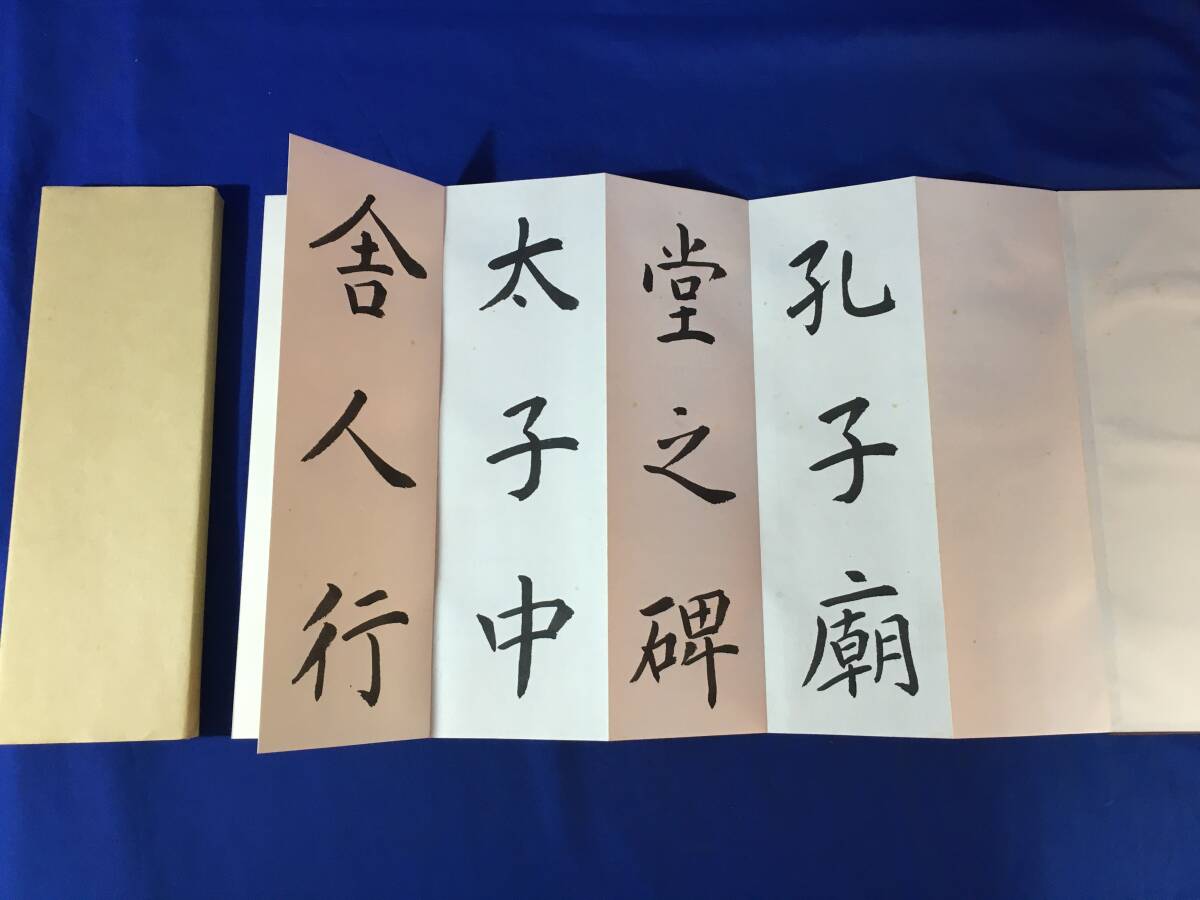 孔子廟
堂之碑
太子中
舎人行